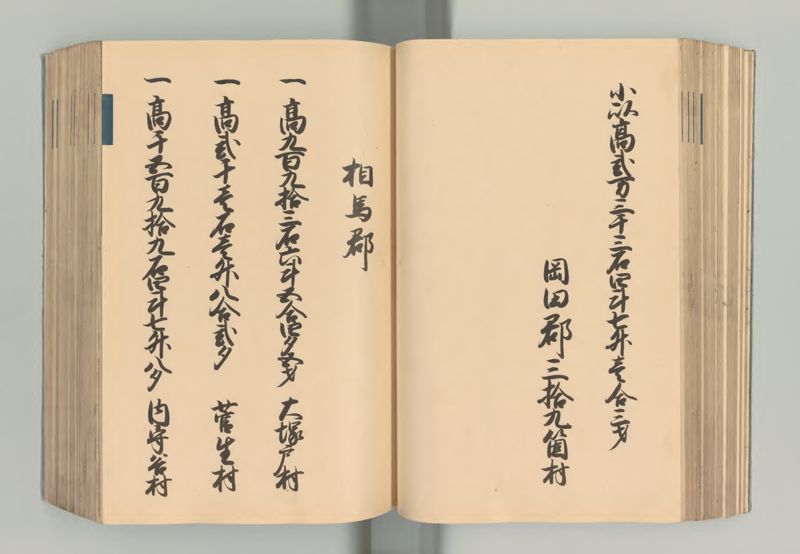 小以高弐万三千三石四斗七升壱合三才
岡田郡三拾九箇村
相馬郡
一高九百九拾三石六斗五合四夕五才 大塚戸村
一高弐千壱石壱升八合弐夕 菅生村
一高千五百九拾九石四斗七升八夕 内守谷村